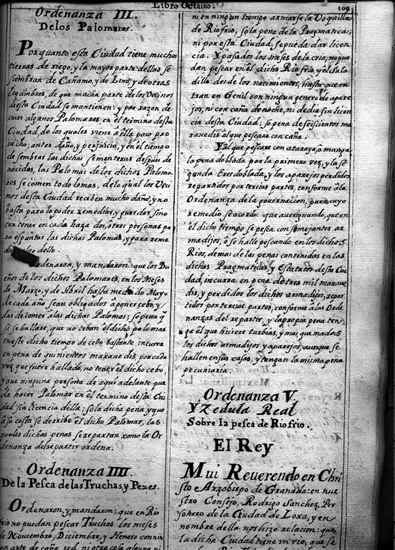 Libro Octauo.
109
Ordenanza III.
De los Palomares.
Por quanto esta Ciudad tiene muchas
tierras de riego, y la mayor parte dellas se
siembran de Cañamo, y de Lino, y de otras
de que mucha parte de los Vecinos
desta Ciudad se mantienen; y por razon de
auer algunos Palomares en el termino desta
Ciudad, de los quales viene a ella poco pro
uecho, antes daño, y perjuicio, y en el tiempo
de sembrar las dichas sementeras despues de
nacidas, las Palomas de los dichos Palomares
se comen todo lo mas, de lo qual los Veci
nos desta Ciudad reciben mucho daño, y no
basta para lo poder remediar, y guardar, sino
con tener en cada haça dos, o tres personas pa
ra espantar las dichas Palomas, y para reme
dio dello
Ordenaron, y mandaron: que los Du
eños de los dichos Palomares, en los Meses
de Marzo, y de Abril hasta de Mayo
de cada año sean obligados a poner cebo, y
dar de comer a las dichas Palomas; so pena q̃
si se hallase, que no ceban el dicho palomar
en este dicho tiempo de cebo bastante incurra
en pena de quinientos marauedis por cada
vez que fuere hallado, no tener el dicho cebo,
y que ninguna persona de aqui adelante pue
da hacer Palomar en el termino desta Ciu
dad sin licencia della; so la dicha pena, y que
a su costa se derribe el dicho Palomar, las
quales dichas penas se repartan como la Or
denanza de repartir ordena.
Ordenanza IIII.
De la Pesca de las Truchas, y Pezes.
Ordenaron, y mandaron: que en Rio
frio no puedan pescar Truchas los meses
de Nouiembre, Deciembre, y Henero con nin
ni en ningun tiempo
de Riofrio, so la pena de la Pragmatica;
ni por esta Ciudad, se puede dar licen
cia. Y pasados los meses de la cria, no pue
dan pescar en el dicho Riofrio,
dilla desde los nacimientos, hasta que en
tran en Genil con ningun genero de apare
jos, ni con caña de noche, ni de dia sin licen
cia desta Ciudad, so pena de seiscientos ma
rauedis algun pescase con caña.
Y al que pescare con atarraya, o manga
la pena doblada por la primera vez, y la se
gunda tres doblada, y los aparejos perdidos
repartidos por tercias partes, conforme a la
Ordenanza de la particion, para cuyo
remedio se acordo que aueriguando, que en
el dicho tiempo se pesca con semejantes ar
madijos, o se halle pescando en los dichos
Rios, demas de las penas contenidas en las
dichas Pragmaticas, y Estatutos desta Ciu
dad, incurra en pena de tres mil maraue
dis, y perdidos los dichos armadijos, repar
tidos por tercias partes, conforme a las Orde
nanzas del repartir, y la propia pena ten
ga el que hiciere turbias, y mas que madera
los dichos armadijos, y aparejos, aunque se
hallen en sus casas, y tengan la misma pena
pecuniaria.
Ordenanza V.
Y Zedula Real
Sobre la pesca de Riofrio.
El Rey
Mui Reuerendo en Chri
sto Arzobispo de Granada: en nue
stro Consejo, Rodrigo Sanchez, Per
sonero de la Ciudad de Loxa, y en
nombre della nos hizo relacion: que
la dicha Ciudad tiene un rio, que se